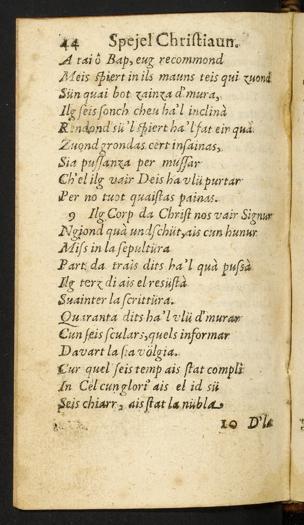 44 Spejel Christiaun.
A tai ô Bap, eug recommond
Meis spiert in ils mauns teis qui zuond
Sün quai bot zainza d'mura,
Ilg seis sonch cheu ha'l inclinà
Rendond sü'l spiert ha'l fat eir quà
Zuond grondas cèrt insainas,
Sia pussanza per mussar
Ch'el ilg vair Deis ha vlü purtar
Per no tuot quaistas painas.
9 Ilg Corp da Christ nos vair Signur
Ngiond quà undschüt, ais cun hunur
Miss in la sepultüra
Part da trais dits ha'l quà pussà
Ilg terz di ais el resüstà
Suainter la scrittüra.
Quaranta dits ha'l vlü d'murar
Cun seis sculars, quels informar
Davart la sia völgia.
Cur quel seis temp ais stat compli
In Cel cun glori' ais el id sü
Seis chiarr, ais stat la nübla.
10 D'la